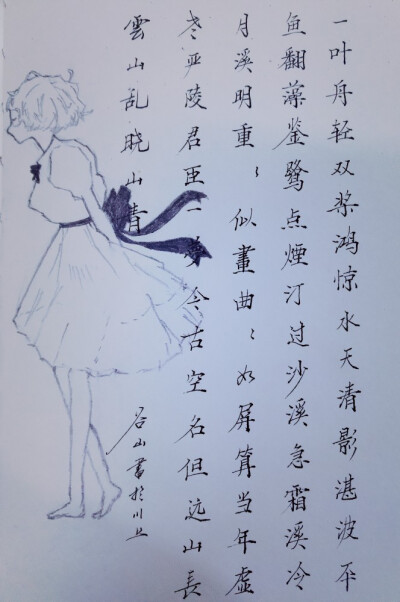 一叶舟轻双桨鸿惊水天清影湛波平
鱼翻藻鉴鹭点煙汀过沙溪急霜溪冷
月溪明重〻似畫曲〻如屏算当年虚
老严陵君臣一梦今古空名但远山長
雲山乱晓山青
谷山書於川上